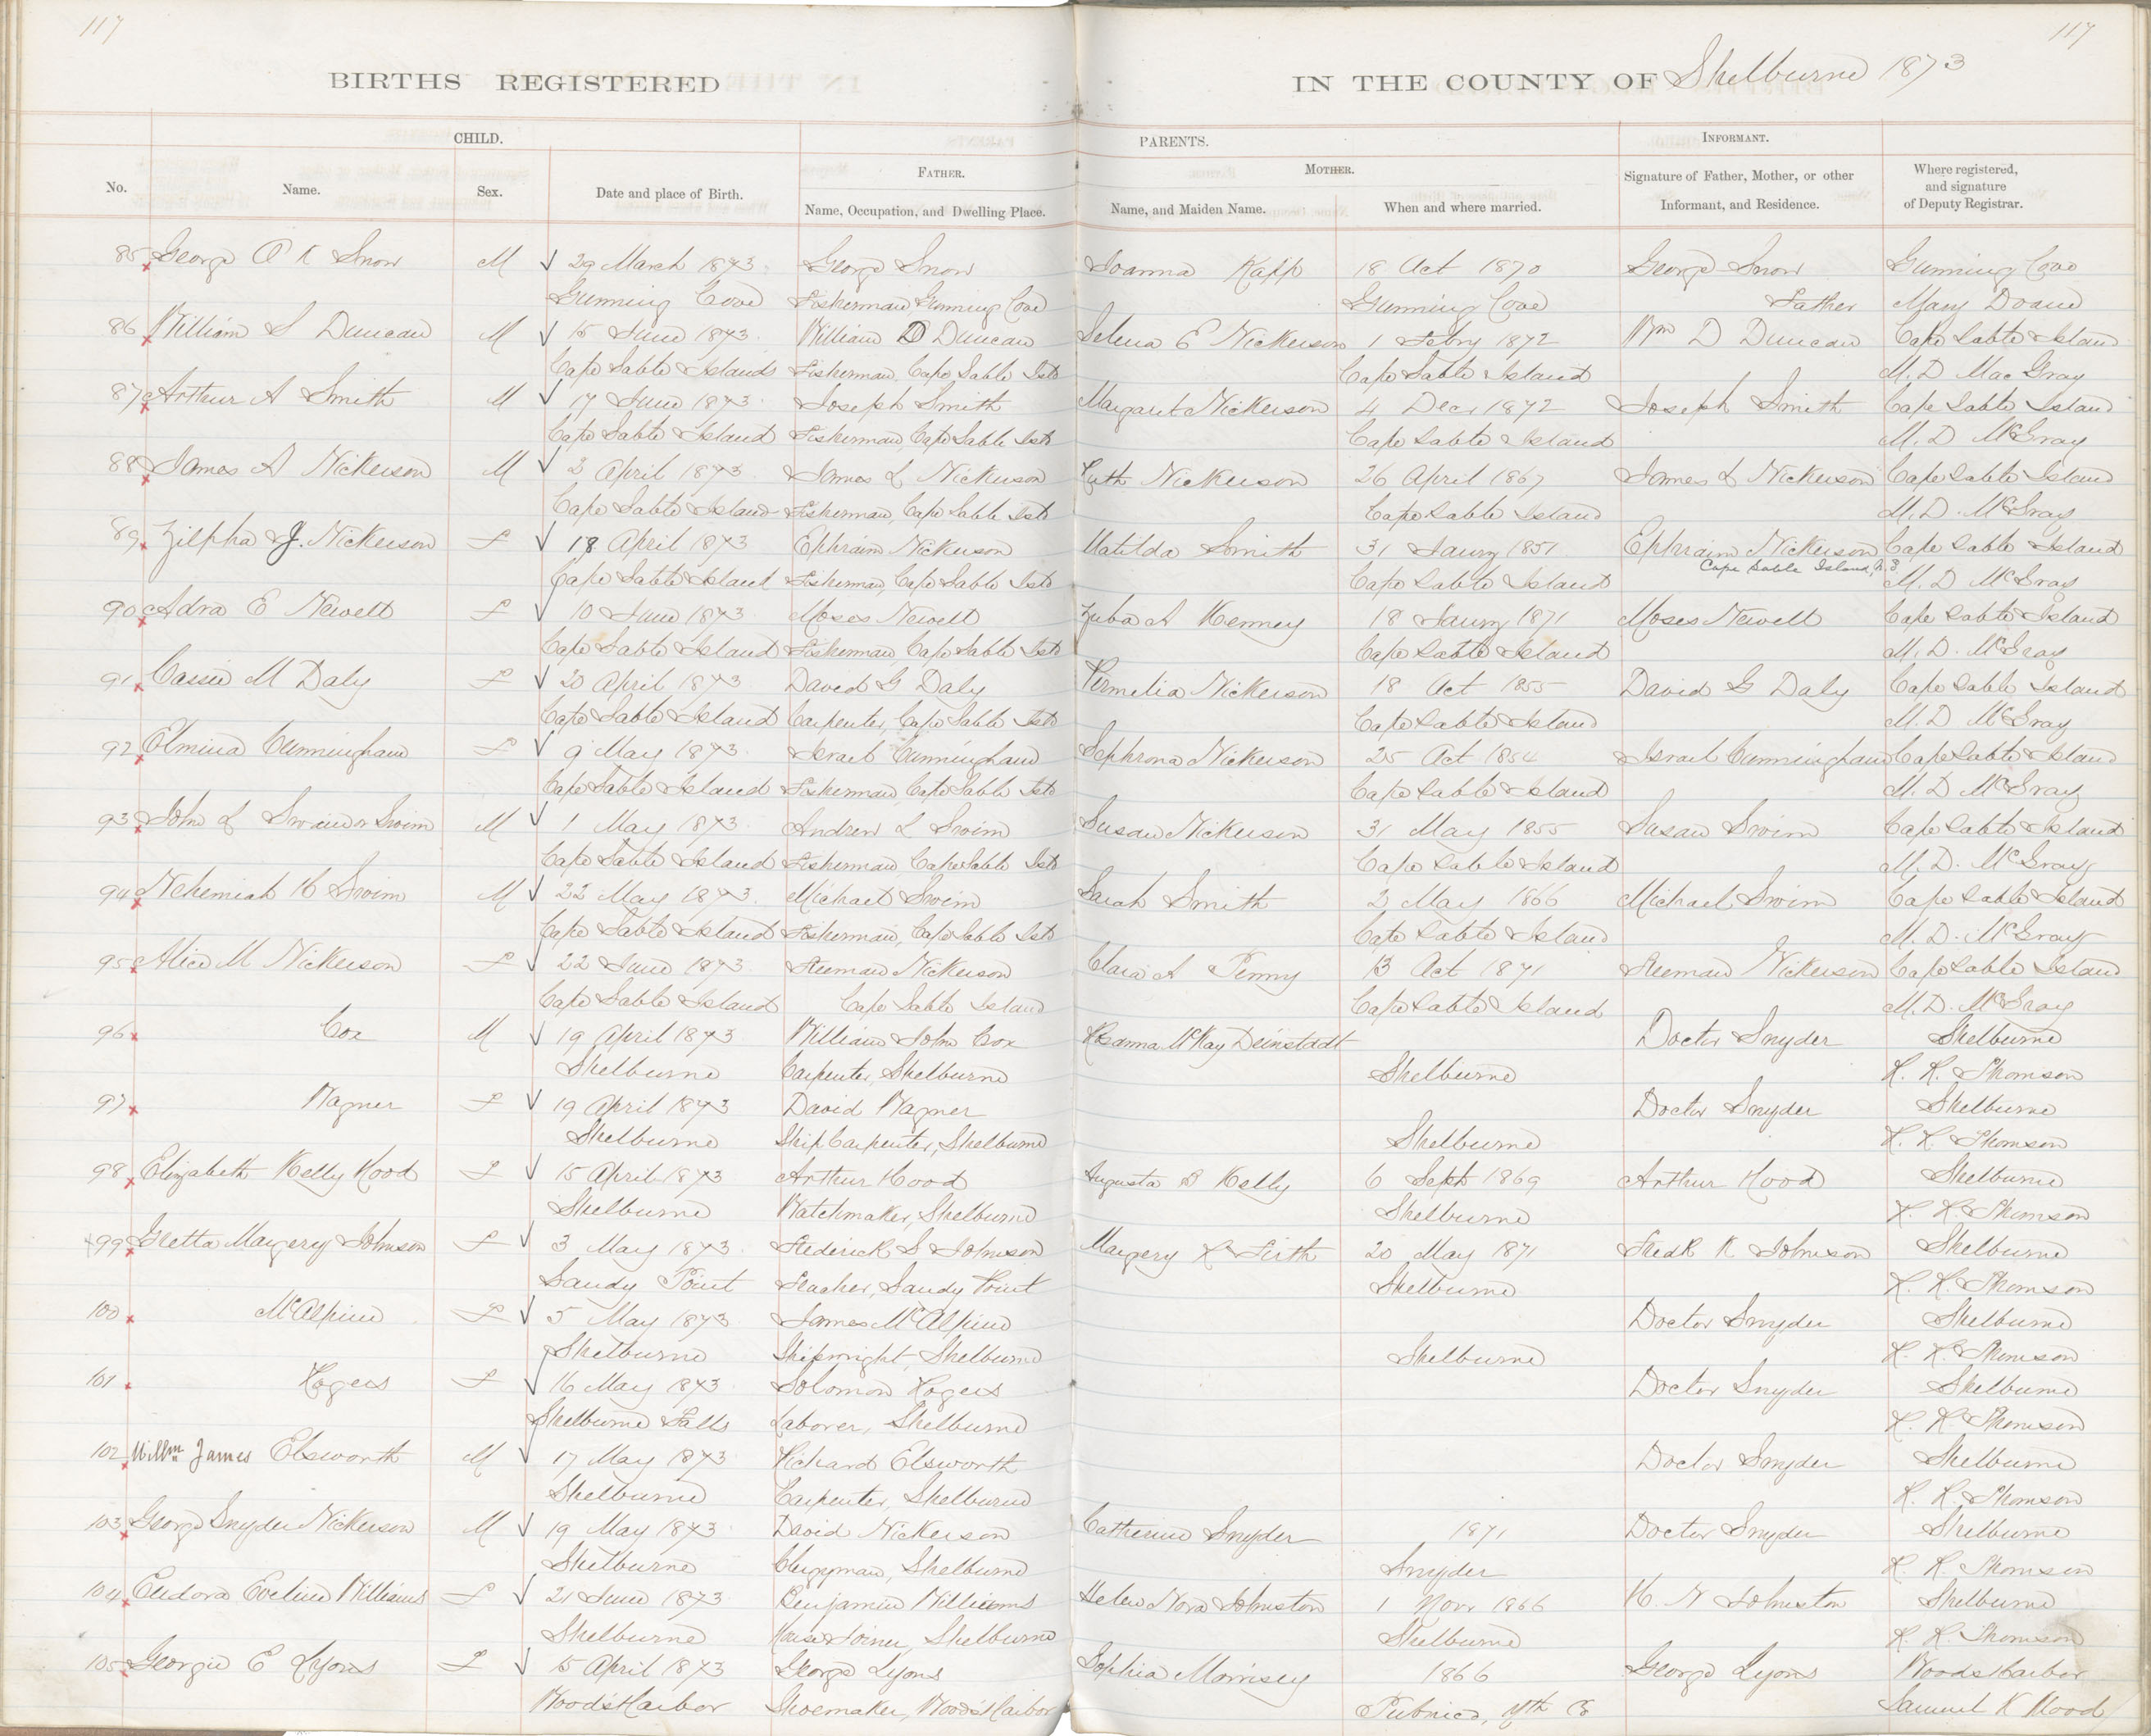 117
117
BIRTHS REGISTERED
IN THE COUNTY OF Shelburne 1873
CHILD.
PARENTS.
INFORMANT.
No.
Name.
Sex.
Date and place of Birth.
FATHER.
Name, Occupation, and Dwelling Place.
MOTHER.
Name, and Maiden Name.
When and where married.
Signature of Father, Mother, or other
Informant, and Residence.
Where registered,
and signature
of Deputy Registrar.
85 George A K Snow M 29 March 1873 George Snow Joanna Kapp 18 Oct 1870 George Snow Gunning Cove
Gunning Cove Fisherman Gunning Cove Gunning Cove Father Mary Doane
86 William S Duncan M 15 June 1873 William D Duncan Selena E Nickerson 1 Febry 1872 Wm D Duncan Cape Sable Island
Cape Sable Islands Fisherman, Cape Sable Isld Cape Sable Island M. D MacGray
87 Arthur A Smith M 17 June 1873 Joseph Smith Margaret Nickerson 4 Decr 1872 Joseph Smith Cape Sable Island
Cape Sable Island Fisherman, Cape Sable Isld Cape Sable Island M. D McGray
88 James A Nickerson M 2 April 1873 James L Nickerson Ruth Nickerson 26 April 1867 James L Nickerson Cape Sable Island
Cape Sable Island Fisherman, Cape Sable Isld Cape Sable Island M. D. McGray
89 Zilpha J. Nickerson F 18 April 1873 Ephraim Nickerson Matilda Smith 31 Jaury 1851 Ephraim Nickerson Cape Sable Island
Cape Sable Island, N. S.
Cape Sable Island Fisherman, Cape Sable Isld Cape Sable Island M. D McGray
90 Adra E Newell F 10 June 1873 Moses Newell Zuba A Kenney 18 Jaury 1871 Moses Newell Cape Sable Island
Cape Sable Island Fisherman, Cape Sable Isld Cape Sable Island M. D. McGray
91 Cassie M Daly F 20 April 1873 David G Daly Permelia Nickerson 18 Oct 1855 David G Daly Cape Sable Island
Cape Sable Island Carpenter, Cape Sable Isld Cape Sable Island M. D McGray
92 Elmina Cunningham F 9 May 1873 Israel Cunningham Sophrona Nickerson 25 Oct 1854 Israel Cunningham Cape Sable Island
Cape Sable Island Fisherman, Cape Sable Isld Cape Sable Island M. D McGray
93 John L Swain or Swim M 1 May 1873 Andrew L Swim Susan Nickerson 31 May 1855 Susan Swim Cape Sable Island
Cape Sable Island Fisherman, Cape Sable Isld Cape Sable Island M. D. McGray
94 Nehemiah K Swim M 22 May 1873 Michael Swim Sarah Smith 2 May 1866 Michael Swim Cape Sable Island
Cape Sable Island Fisherman, Cape Sable Isld Cape Sable Island M. D. McGray
95 Alice M Nickerson F 22 June 1873 Freeman Nickerson Clara A Penny 13 Oct 1871 Freeman Nickerson Cape Sable Island
Cape Sable Island Cape Sable Island Cape Sable Island M. D. McGray
96 Cox M 19 April 1873 William John Cox Rosanna McKay Deinstadt Doctor Snyder Shelburne
Shelburne Carpenter, Shelburne Shelburne R. R. Thomson
97 Wagner F 19 April 1873 David Wagner Doctor Snyder Shelburne
Shelburne Ship Carpenter, Shelburne Shelburne R. R. Thomson
98 Elizabeth Kelly Hood F 15 April 1873 Arthur Hood Augusta B Kelly 6 Sept 1869 Arthur Hood Shelburne
Shelburne Watchmaker, Shelburne Shelburne R. R. Thomson
99 Gretta Margery Johnson F 3 May 1873 Frederick S Johnson Margery R Firth 20 May 1871 Fredk R Johnson Shelburne
Sandy Point Teacher, Sandy Point Shelburne R. R. Thomson
100 McAlpine F 5 May 1873 James McAlpine Doctor Snyder Shelburne
Shelburne Shipwright, Shelburne Shelburne R. R. Thomson
101 Rogers F 16 May 1873 Solomon Rogers Doctor Snyder Shelburne
Shelburne Falls Laborer, Shelburne R. R Thomson
102 Willm James Elsworth M 17 May 1873 Richard Elsworth Doctor Snyder Shelburne
Shelburne Carpenter, Shelburne R. R. Thomson
103 George Snyder Nickerson M 19 May 1873 David Nickerson Catherine Snyder 1871 Doctor Snyder Shelburne
Shelburne Clergyman, Shelburne Snyder R. R. Thomson
104 Eudora Eveline Williams F 21 June 1873 Benjamin Williams Helen Nora Johnston 1 Novr 1866 H. N Johnston Shelburne
Shelburne House Joiner, Shelburne Shelburne R. R. Thomson
105 Georgie E Lyons F 15 April 1873 George Lyons Sophia Morrisey 1866 George Lyons Woods Harbor
Wood's Harbor Shoemaker, Wood's Harbor Pubnico, Yth Co Samuel K Wood